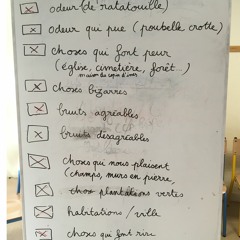 odeur (de ratatouille)
odeur qui pue (poubelle crotte)
choses qui font peur
(église, cimetière, forêt...)
maison
choses bizarres
bruits agréables
bruits désagréables
choses qui nous plaisent
(champs, murs en pierre,
plantations vertes
habitations / ville
choses qui font rire